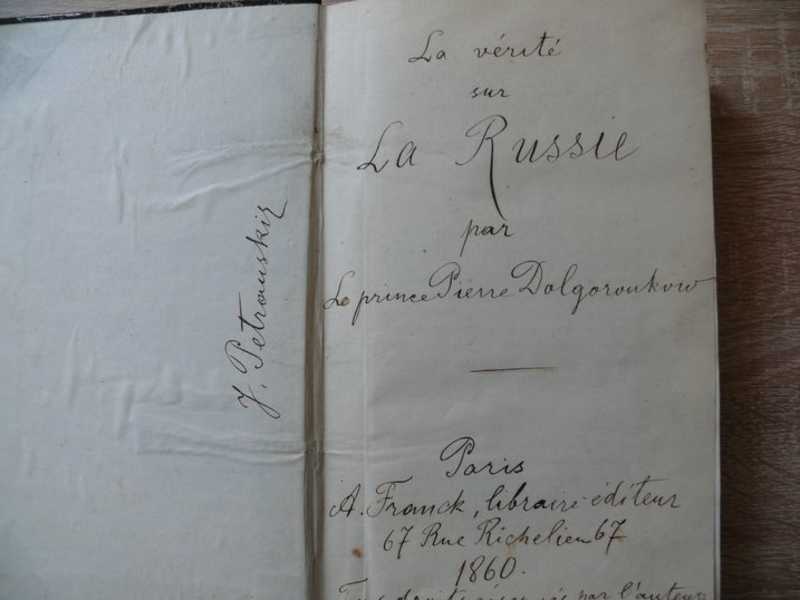 J. Petrouskiz
La vérité
sur
La Russie
par
Le prince Pierre Dolgoroukow
Paris
A. Franck, libraire-éditeur
67 Rue Richelieu 67
1860.
Tous droits réservés par l'auteur